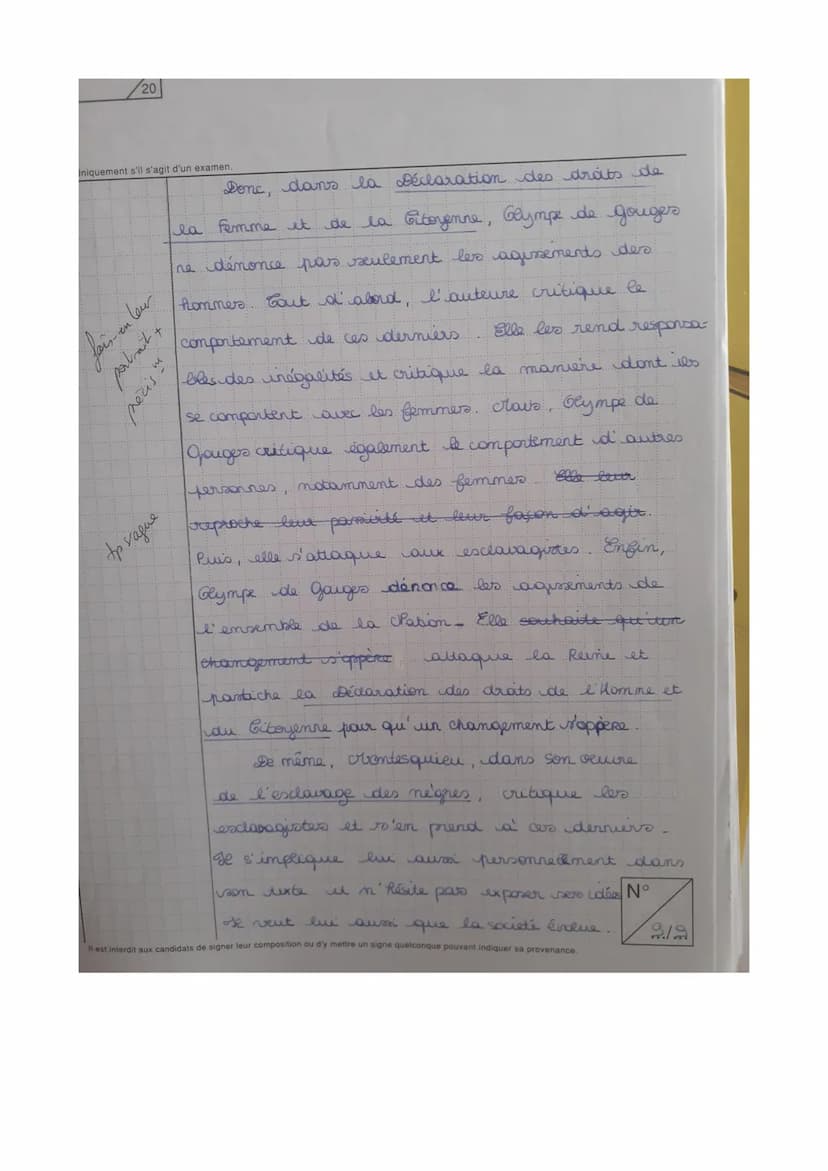 20
iniquement s'il s'agit d'un examen.
Donc, dans la Déclaration des droits de
la Femme et de la Citoyenne, Olympe de Gouges
ne dénonce pas seulement les agissements des
hommes. Tout d'abord, l'auteure critique le
comportement de ces derniers. Elle les rend responsa-
bles des inégalités et critique la manière dont ils
se comportent avec les femmes. Mais, Olympe de
Gouges critique également le comportement d'autres
personnes, notamment des femmes. Elle leur
reproche leur passivité et leur façon d'agir.
Puis, elle s'attaque aux esclavagistes. Enfin,
Olympe de Gouges dénonce les agissements de
l'ensemble de la Nation. Elle souhaite qu'un
changement s'oppère attaque la Reine et
pastiche la Déclaration des droits de l'Homme et
du Citoyenne pour qu'un changement s'oppère.
De même, Montesquieu, dans son oeuvre
de l'esclavage des nègres, critique les
esclavagistes et s'en prend à ces derniers.
Il s'implique lui aussi personnellement dans
son texte et n'hésite pas exposer ses idées
Il veut lui aussi que la société évolue.
fais-en leur
portrait +
précis
tp vague
N°
2/2
Il est interdit aux candidats de signer leur composition ou d'y mettre un signe quelconque pouvant indiquer sa provenance.